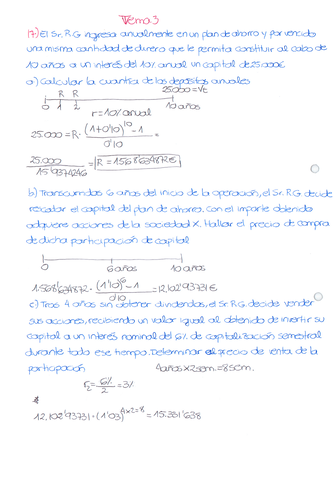 Tema 3
17) El Sr. R.G ingresa anualmente en un plan de ahorro y por vencido
una misma cantidad de dinero que le permita constituir al cabo de
10 años a un interés del 10% anual un capital de 25.000€
a) Calcular la cuantía de los depósitos anuales
R R 25.000=Vt
0 1 2 10 años
r=10% anual
25.000=R· (1+0'10)^10 -1 / 0'10 =
25.000 / 15'9374246 = R=1568'634872€
b) Transcurridos 6 años del inicio de la operación, el Sr. R.G decide
rescatar el capital del plan de ahorro. Con el importe obtenido
adquiere acciones de la sociedad X. Hallar el precio de compra
de dicha participación de capital
0 6 años 10 años
1.568'634872 · (1'10)^6 -1 / 0'10 =12.102'93731€
c) Tras 4 años sin obtener dividendos, el Sr. R.G. decide vender
sus acciones, recibiendo un valor igual al obtenido de invertir su
capital a un interés nominal del 6% de capitalización semestral
durante todo ese tiempo. Determinar el precio de venta de la
participación 4 años x 2 sem. = 8 sem.
= 6% / 2 = 3%
12.102'93731 · (1'03)^4x2=8 = 15.331'638